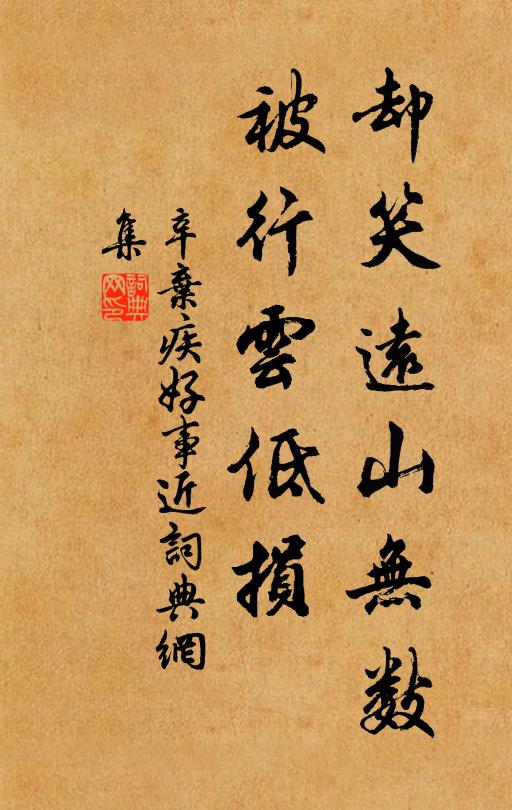 却笑遠山無數
被行雲低損
辛棄疾好事近詞典網
集
詞典
网印